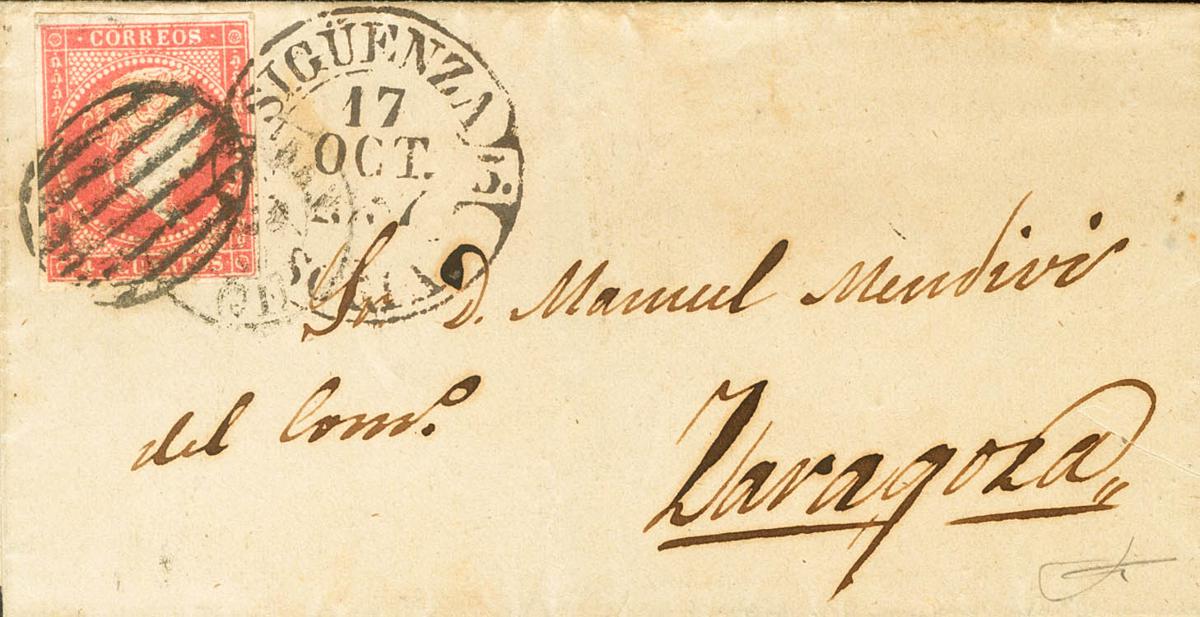 CORREOS
SIGÜENZA
17
OCT.
Sr. D. Manuel Mendivi
del Com.º
Zaragoza